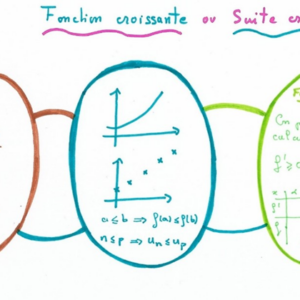 Fonction croissante ou Suite c
a ≤ b ⇒ f(a) ≤ f(b)
n ≤ p ⇒ uₙ ≤ uₚ
F
On
calcu
f' ≥
x
f'
f